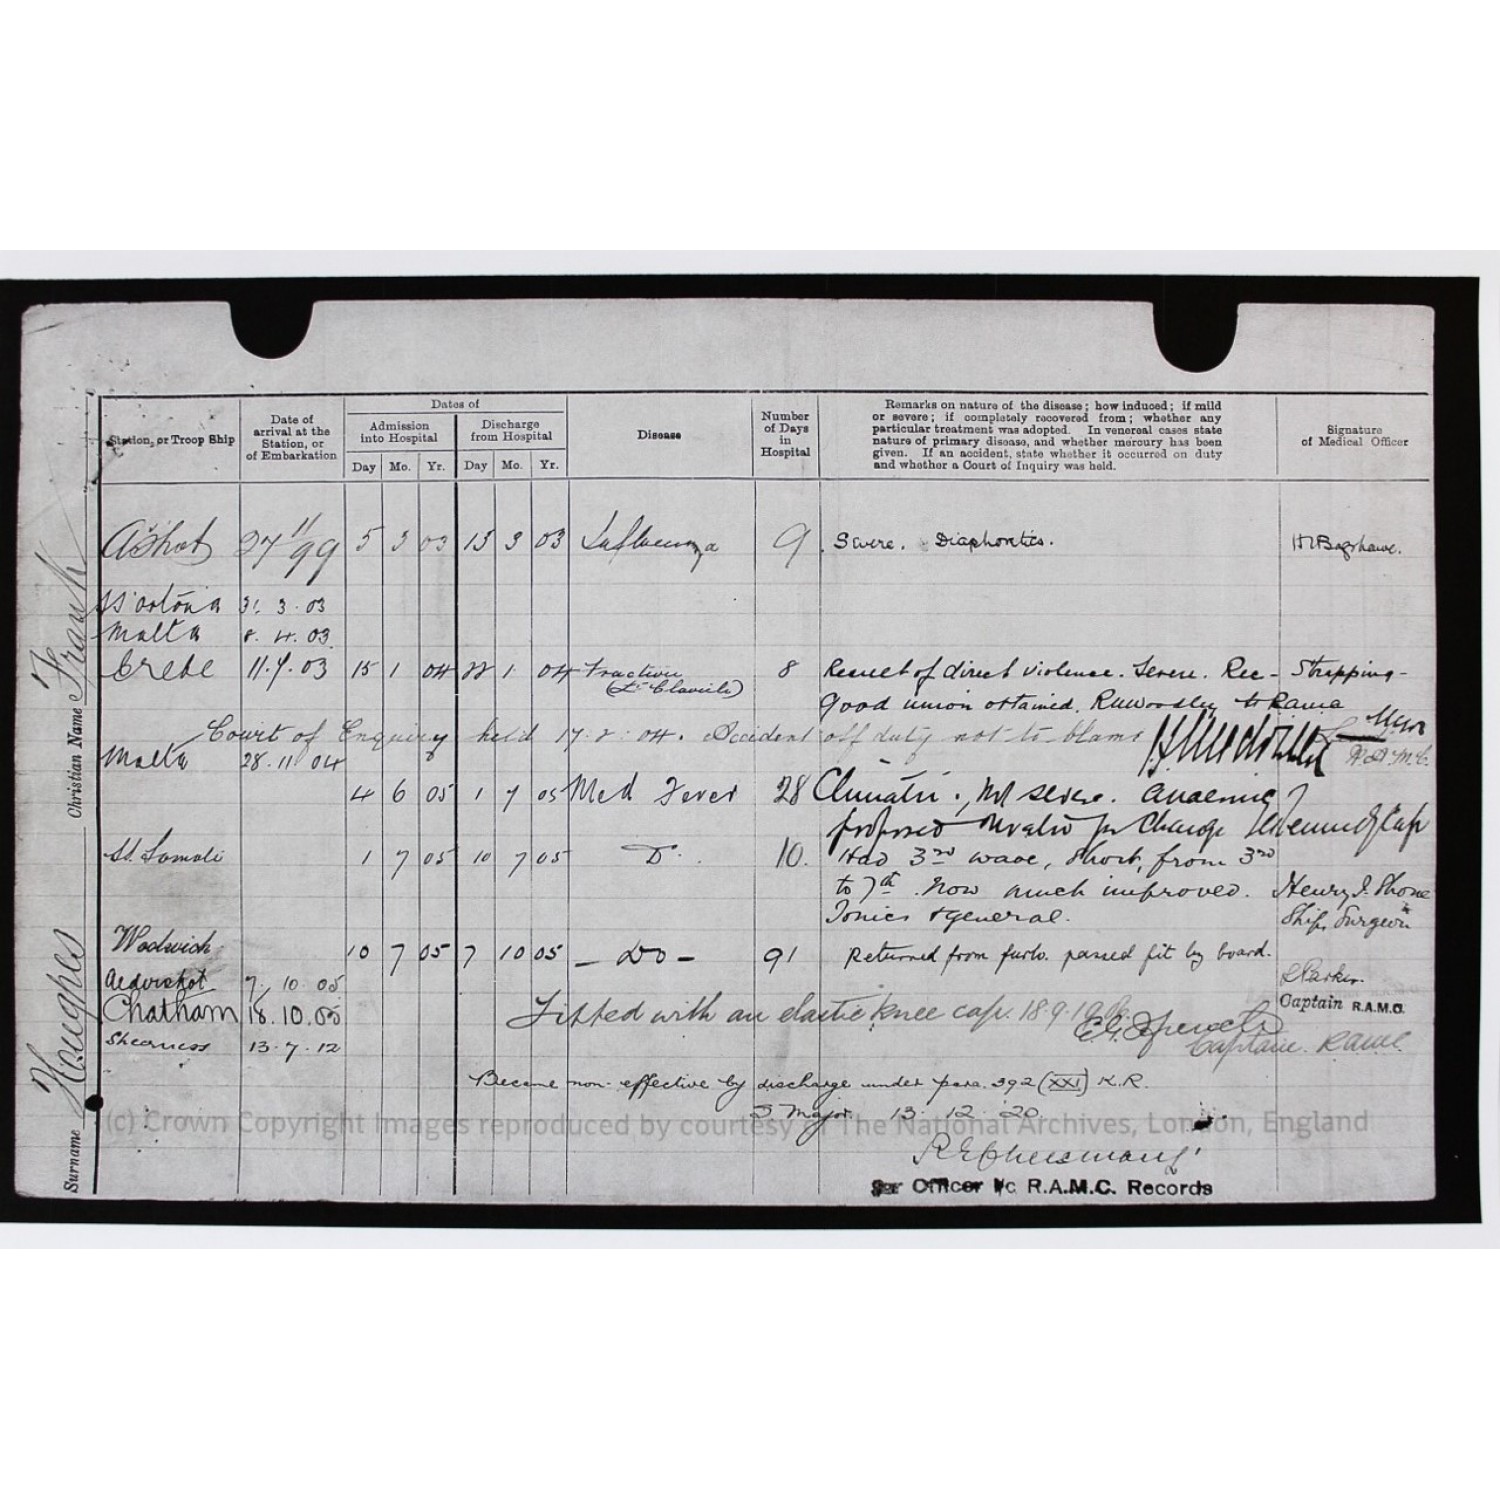 Dates of
Station, or Troop Ship
Date of arrival at the Station, or of Embarkation
Admission into Hospital
Discharge from Hospital
Day Mo. Yr. Day Mo. Yr.
Disease
Number of Days in Hospital
Remarks on nature of the disease; how induced; if mild
or severe; if completely recovered from; whether any
particular treatment was adopted. In venereal cases state
nature of primary disease, and whether mercury has been
given. If an accident, state whether it occurred on duty
and whether a Court of Inquiry was held.
Signature of Medical Officer
27 11 99 5 3 03 13 3 03 Influenza 9 Severe. Diaphoretics. Bagshawe.
31. 3. 03
Malta 8. 4. 03
Crete 11.9.03 15 1 04 22 1 04 8 Result of direct violence. Severe. Rec- Strapping-
(Lt Clavicle)
Good union obtained.
Court of Enquiry held 17. 2. 04. Accident off duty not to blame
Malta 28. 11 04
4 6 05 1 7 05 Med Fever 28 Climatic. severe. Anaemic
proposed for Change
SS. Somali 1 7 05 10 7 05 Do. 10. Had 3rd wave, short, from 3rd
to 7th. Now much improved. Henry J. Shone
Tonics & general. Ship Surgeon
Woolwich 10 7 05 7 10 05 - Do - 91 Returned from furlo. passed fit by board.
Aldershot 7. 10 05 Parker.
Captain R.A.M.C.
Chatham 18. 10. 05 Fitted with an elastic knee cap. 18.9.19
Sheerness 13. 7. 12 Captain. RAMC.
Became non-effective by discharge under para. 392 (XXI) K.R.
S Major. 13. 12. 20.
(c) Crown Copyright Images reproduced by courtesy of The National Archives, London, England
for Officer i/c R.A.M.C. Records
Surname Houghes Christian Name Frank